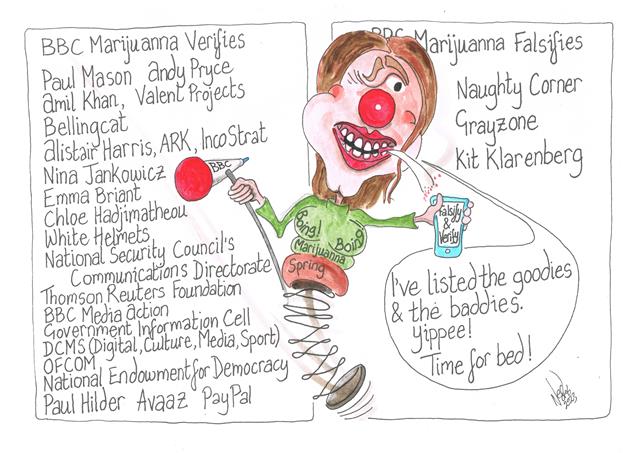 BBC Marijuanna Verifies
Paul Mason Andy Pryce
Amil Khan, Valent Projects
Bellingcat
Alistair Harris, ARK, IncoStrat
Nina Jankowicz
Emma Briant
Chloe Hadjimatheou
White Helmets
National Security Council's
Communications Directorate
Thomson Reuters Foundation
BBC Media Action
Government Information Cell
DCMS (Digital, Culture, Media, Sport)
OFCOM
National Endowment for Democracy
Paul Hilder Avaaz PayPal
BBC
Boing! Boing!
Marijuanna
Spring
BBC Marijuanna Falsifies
Naughty Corner
Grayzone
Kit Klarenberg
Falsify
&
Verify
I've listed the goodies
& the baddies.
Yippee!
Time for bed!
2023